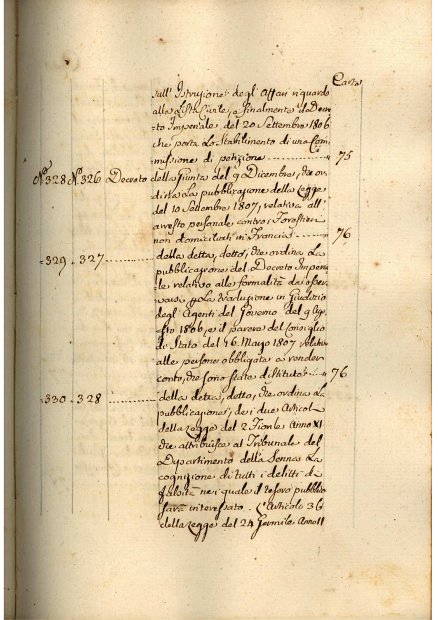 Carta
sull' Istruzione degli Affari riguardo
alla Lista Civile, e finalmente il Decre
to Imperiale del 20 Settembre 1806
che porta lo Stabilimento di una Com
missione di petizione 75
N.° 328 N.° 326 Decreto della Giunta del 9 Dicembre, che or
dina la pubblicazione della Legge
del 10 Settembre 1807, relativa all'
arresto personale contro i Forastieri
non domiciliati in Francia 76
329 327 della detta, detto, che ordina la
pubblicazione del Decreto Imperia
le relativo alle formalità da osser
varsi la traduzione in Giudizio
degli Agenti del Governo del 9 Ago
sto 1806, e il parere del Consiglio
di Stato del 16 Mago 1807 relativo
alle persone obbligate a render
conto, che sono state distituite 76
330 328 della detta, detto, che ordina la
pubblicazione, de i due Articoli
della Legge del 2 Fiorile Anno XI
che attribuisce al Tribunale del
Dipartimento della Senna la
cognizione di tutti i delitti di
falsità ne i quale il tesoro pubblico
sarà interessato. L'Articolo 36
della Legge del 24 Germile Anno 11